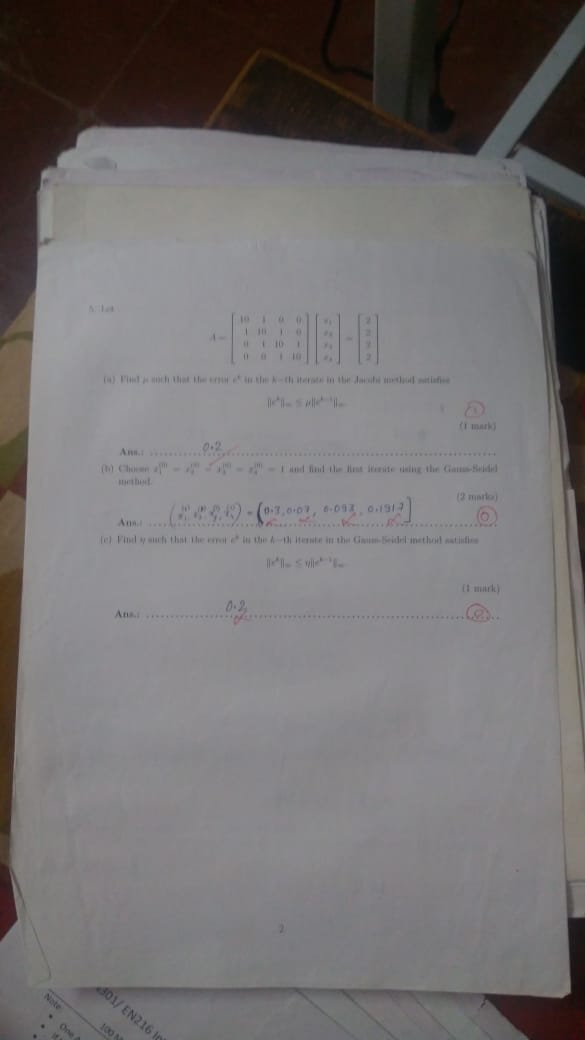 5. Let
A = [10 1 0 0; 1 10 1 0; 0 1 10 1; 0 0 1 10] [x₁; x₂; x₃; x₄] = [2; 2; 2; 2]
(a) Find μ such that the error eᵏ in the k−th iterate in the Jacobi method satisfies
||eᵏ||∞ ≤ μ||eᵏ⁻¹||∞.
(1 mark)
Ans.: 0.2
(b) Choose x₁⁽⁰⁾ = x₂⁽⁰⁾ = x₃⁽⁰⁾ = x₄⁽⁰⁾ = 1 and find the first iterate using the Gauss-Seidel
method.
(2 marks)
Ans.: = (0.3, 0.07, 0.093, 0.1917]
(c) Find η such that the error eᵏ in the k−th iterate in the Gauss-Seidel method satisfies
||eᵏ||∞ ≤ η||eᵏ⁻¹||∞.
(1 mark)
Ans.: 0.2
2
301/ EN216
100
Note:
One